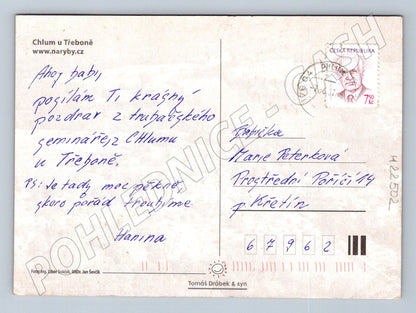 Chlum u Třeboně
www.naryby.cz
Ahoj babi,
posílám Ti krásný
pozdrav z trubačského
semináře z Chlumu
u Třeboně.
PS: Je tady moc pěkně,
skoro pořád troubíme
Hanina
ČESKÁ REPUBLIKA
7,50
Babička
Marie Peterková
Prostřední Poříčí 14
p. Křetín
6 7 9 6 2
M 22502
Tomáš Drábek & syn
POHLEDNICE - CASH